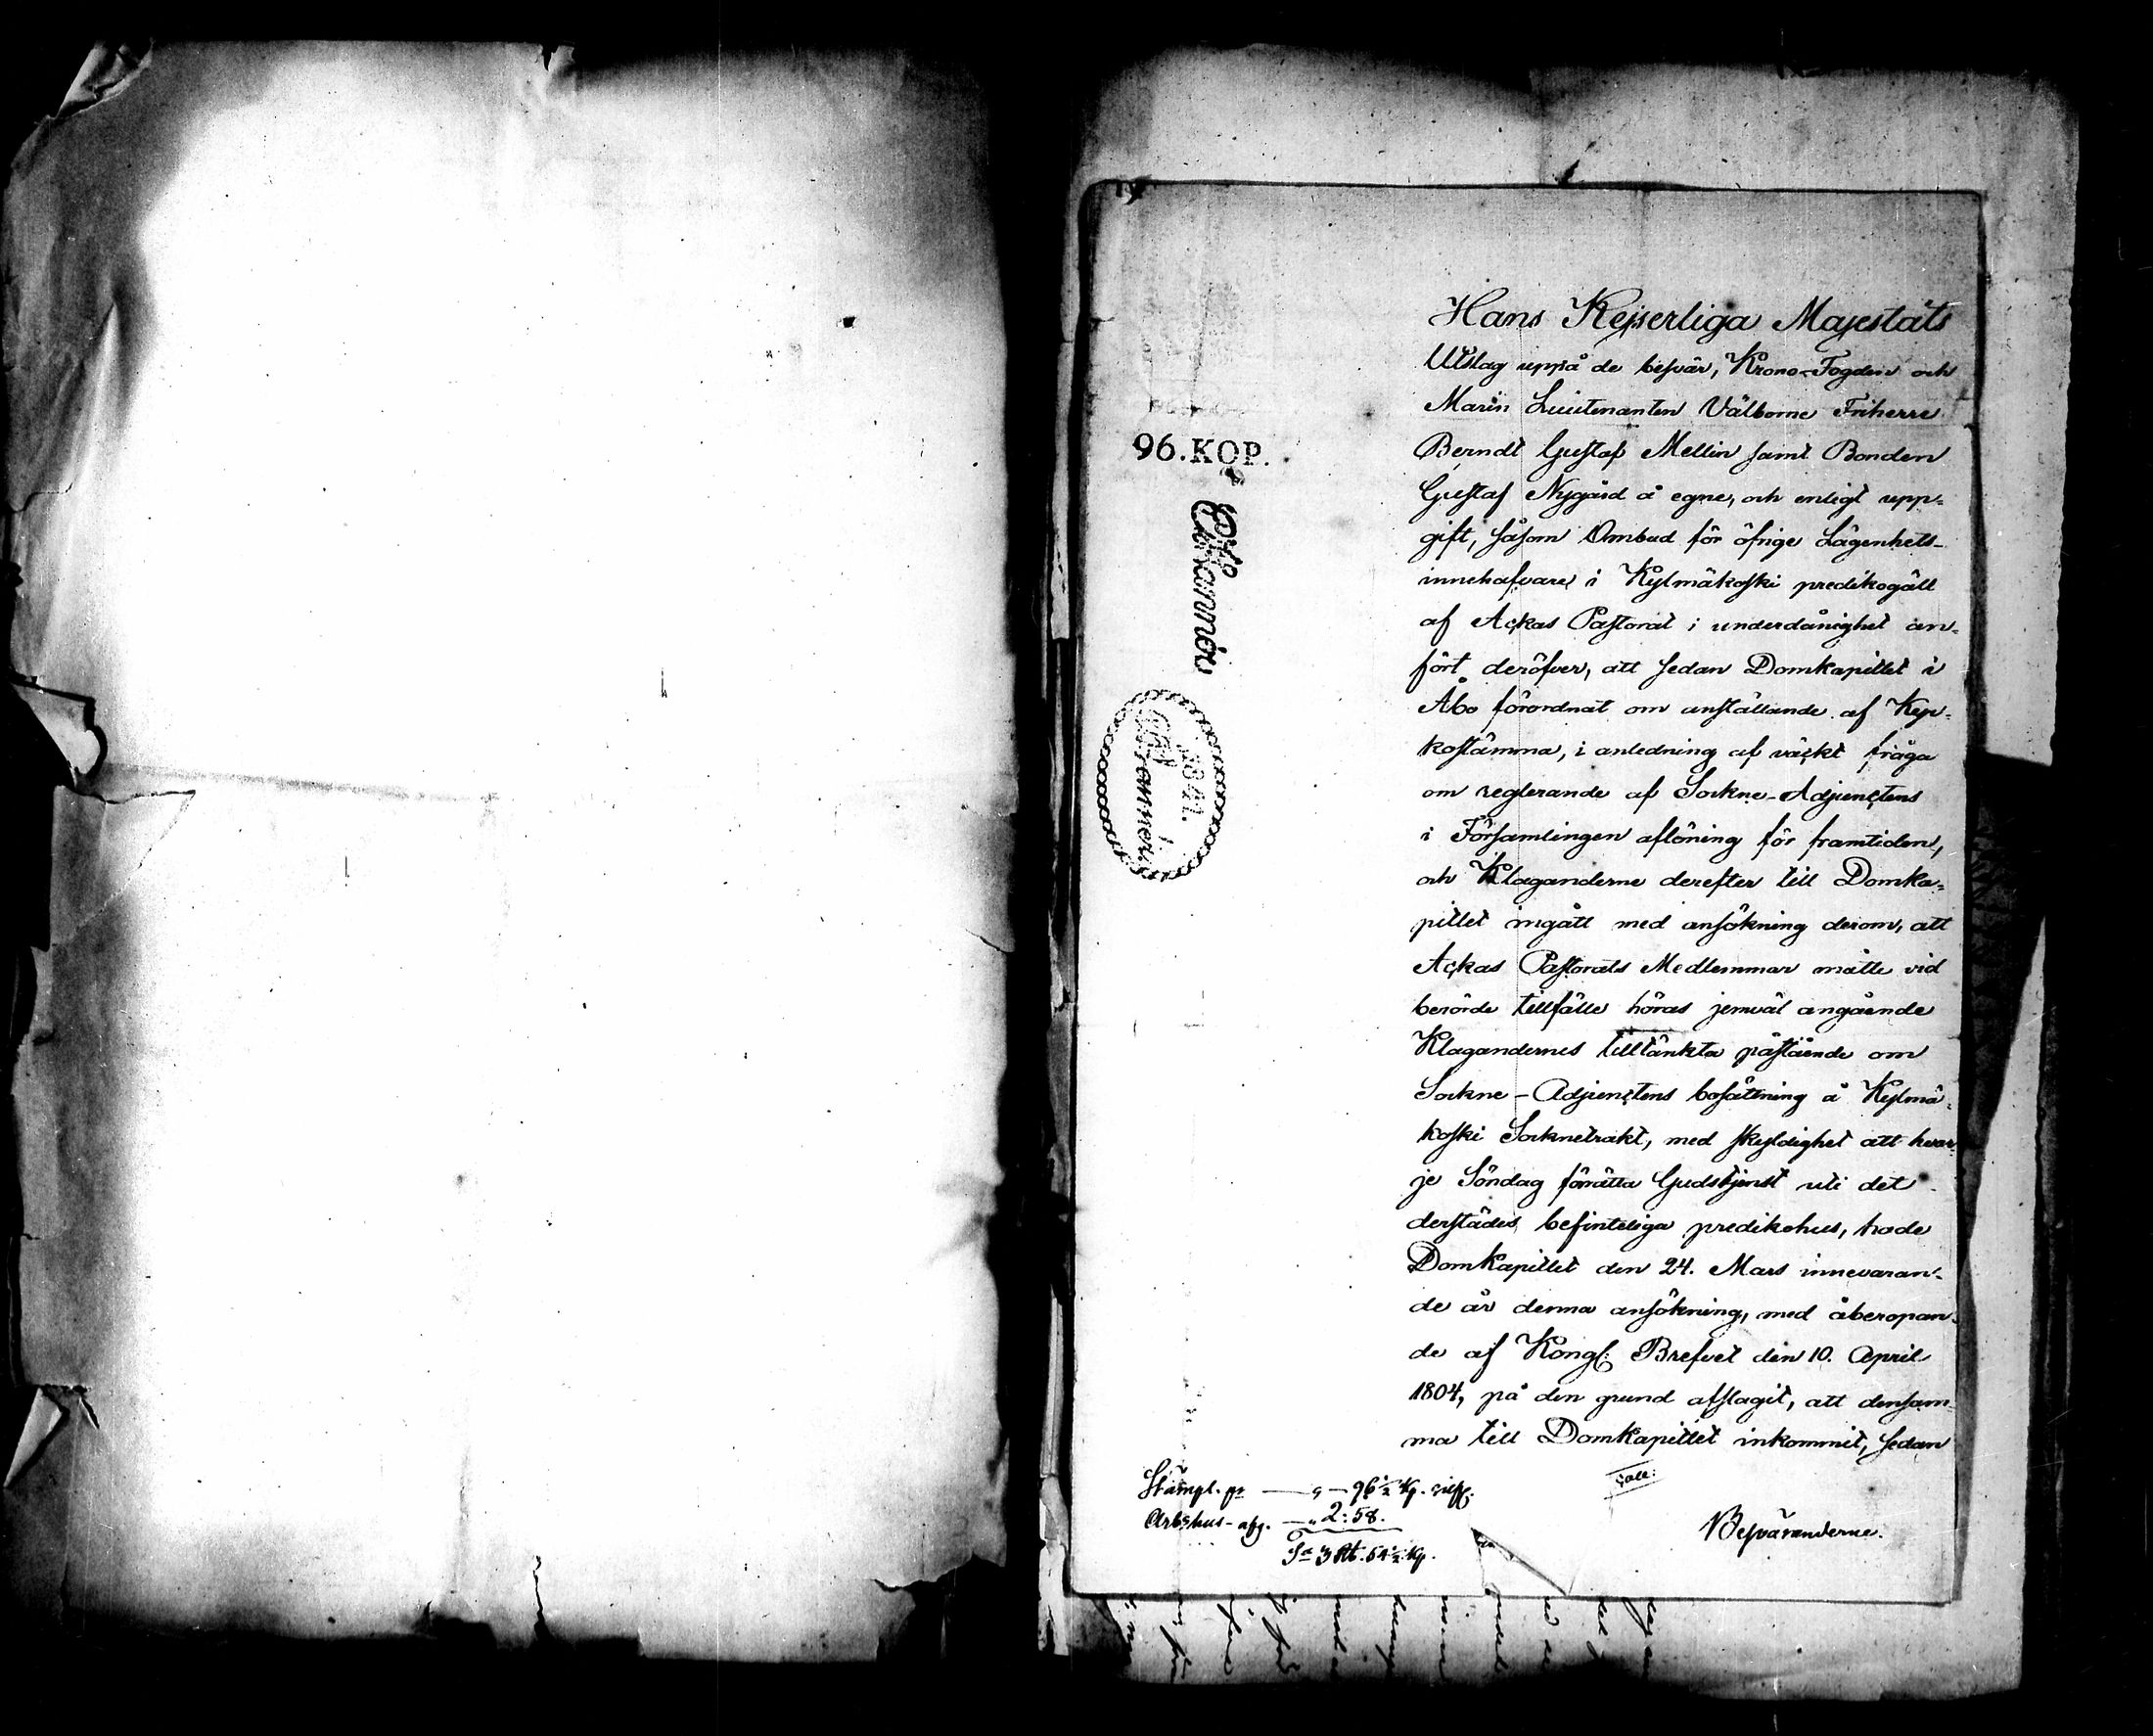 Hans Kejserliga Majestäts
Utslag uppå de besvär, Krono-Fogden och
Marin Lieutenanten Välborne Friherre
Berndt Gustaf Mellin samt Bonden
Gustaf Nygård å egne, och enligt upp-
gift, såsom Ombud för öfrige Lägenhets-
innehafvare i Kylmäkoski predikogäll
af Ackas Pastorat i underdånighet an-
fört deröfver, att sedan Domkapitlet i
Åbo förordnat om anställande af Kyr-
kostämma, i anledning af väckt fråga
om reglerande af Sockne-Adjunctens
i Församlingen aflöning för framtiden,
och Klaganderne derefter till Domka-
pitlet ingått med ansökning derom, att
Ackas Pastorats Medlemmar måtte vid
berörde tillfälle höras jemväl angående
Klagandernes tilltänkta påstående om
Sockne-Adjunctens bosättning å Kylmä-
koski Socknetrakt, med skyldighet att hvar-
je Söndag förrätta Gudstjenst uti det
derstädes befinteliga predikohus, hade
Domkapitlet den 24. Mars innevaran-
de år denna ansökning, med åberopan-
de af Kongl. Brefvet den 10. April
1804, på den grund afslagit, att densam-
ma till Domkapitlet inkommit, sedan
96. KOP.
1841.
Stämpl. pr — „ — 96 1/2 Kp. silfr.
Arbshus-afg. — „ 2: 58.
Sa 3 Rb. 54 1/2 Kp.
Besväranderne.